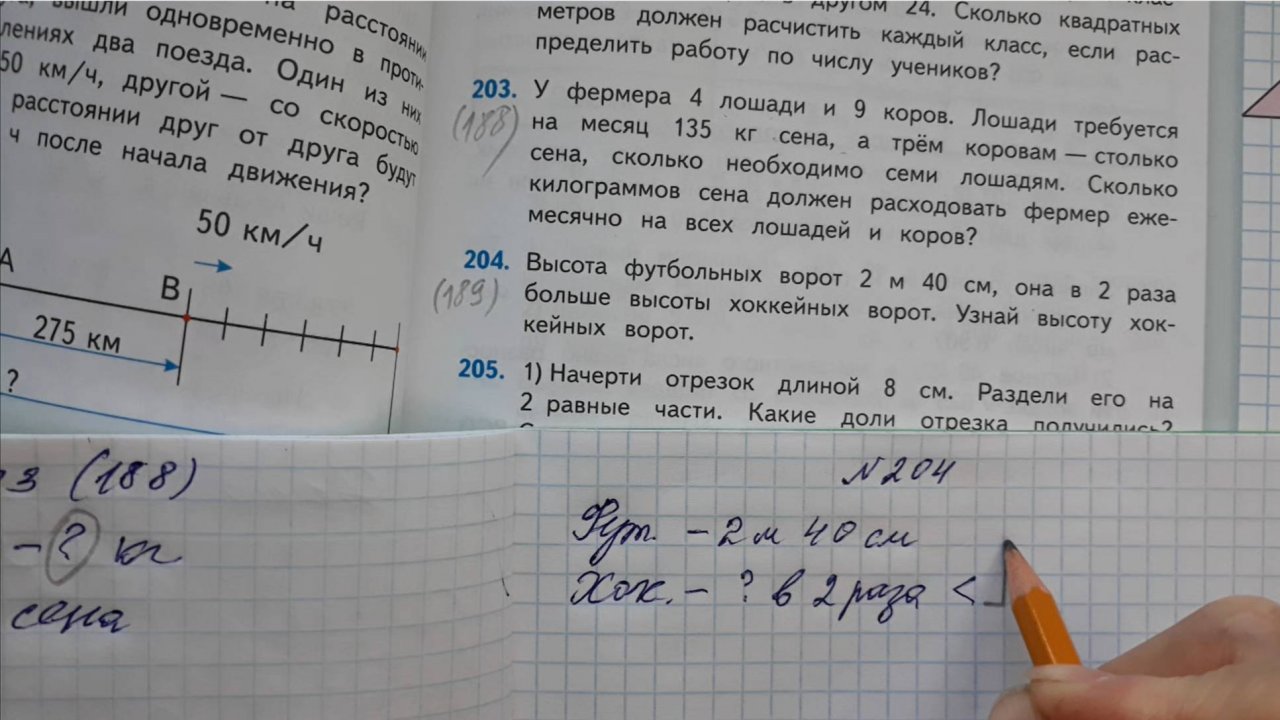 расстоянии
вышли одновременно в проти-
лениях два поезда. Один из них
50 км/ч, другой — со скоростью
расстоянии друг от друга будут
ч после начала движения?
50 км/ч
A
B
275 км
?
другом 24. Сколько квадратных
метров должен расчистить каждый класс, если рас-
пределить работу по числу учеников?
203. У фермера 4 лошади и 9 коров. Лошади требуется
(188) на месяц 135 кг сена, а трём коровам — столько
сена, сколько необходимо семи лошадям. Сколько
килограммов сена должен расходовать фермер еже-
месячно на всех лошадей и коров?
204. Высота футбольных ворот 2 м 40 см, она в 2 раза
(189) больше высоты хоккейных ворот. Узнай высоту хок-
кейных ворот.
205. 1) Начерти отрезок длиной 8 см. Раздели его на
2 равные части. Какие доли отрезка получились?
3 (188)
- ? кг
сена
№204
Фут. - 2 м 40 см
Хок. - ? в 2 раза <